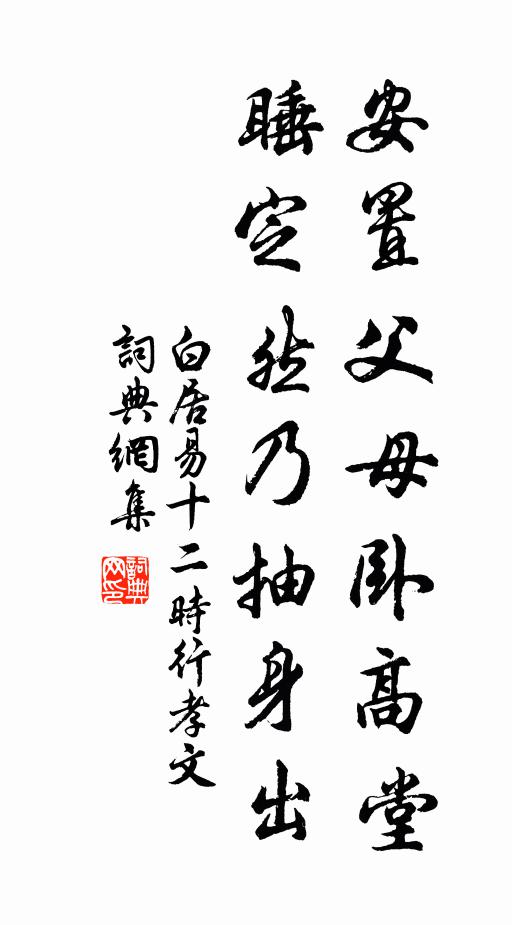 安置父母臥高堂
睡定然乃抽身出
白居易十二時行孝文
詞典網集
詞典網印